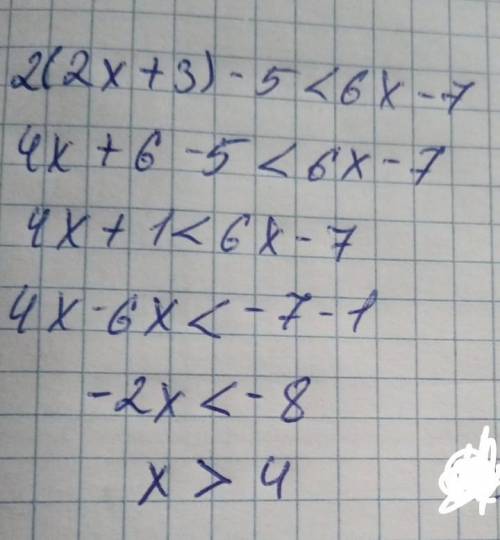 2(2x+3)-5<6x-7
4x+6-5<6x-7
4x+1<6x-7
4x-6x<-7-1
-2x<-8
x>4